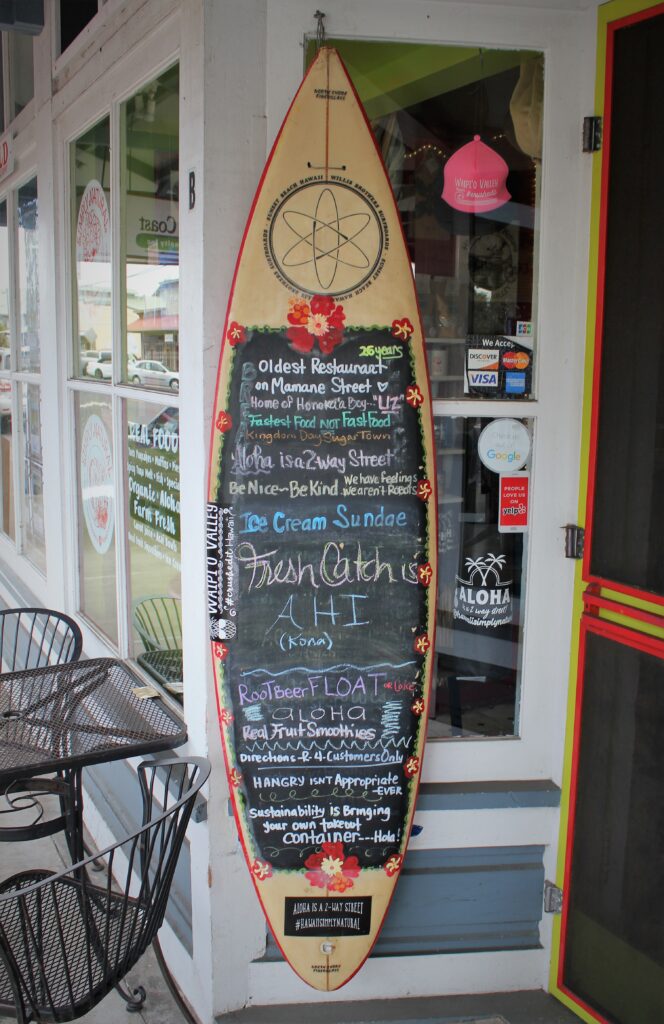 NORTH SHORE
FIBERGLASS
SUNSET BEACH HAWAII • WILLIS BROTHERS SURFBOARDS •
26 years
Oldest Restaurant
on Mamane Street
Home of Honoka'a Boy--"UZ"
Fastest Food NOT Fast Food
Kingdom Day Sugar Town
Aloha is a 2-way Street
Be Nice~Be Kind We have feelings
we aren't Robots
Ice Cream Sundae
Fresh Catch is
AHI
(Kona)
Root Beer FLOAT or Coke
aloha
Real Fruit Smoothies
Directions-R-4-Customers Only
HANGRY ISN'T Appropriate
-EVER
Sustainability is Bringing
your own takeout
container---Hola!
ALOHA IS A 2-WAY STREET
#HAWAIISIMPLYNATURAL
WAIPI'O VALLEY
#crushedit Hawai'i
B
Coast
REAL FOOD
Organic • Aloha
Farm Fresh
WAIPI'O VALLEY
#crushedit
JCB
We Accept
DISCOVER
MasterCard
VISA
Google
PEOPLE
LOVE US
ON
yelp
ALOHA
is a 2 way street!
#hawaiisimplynatural